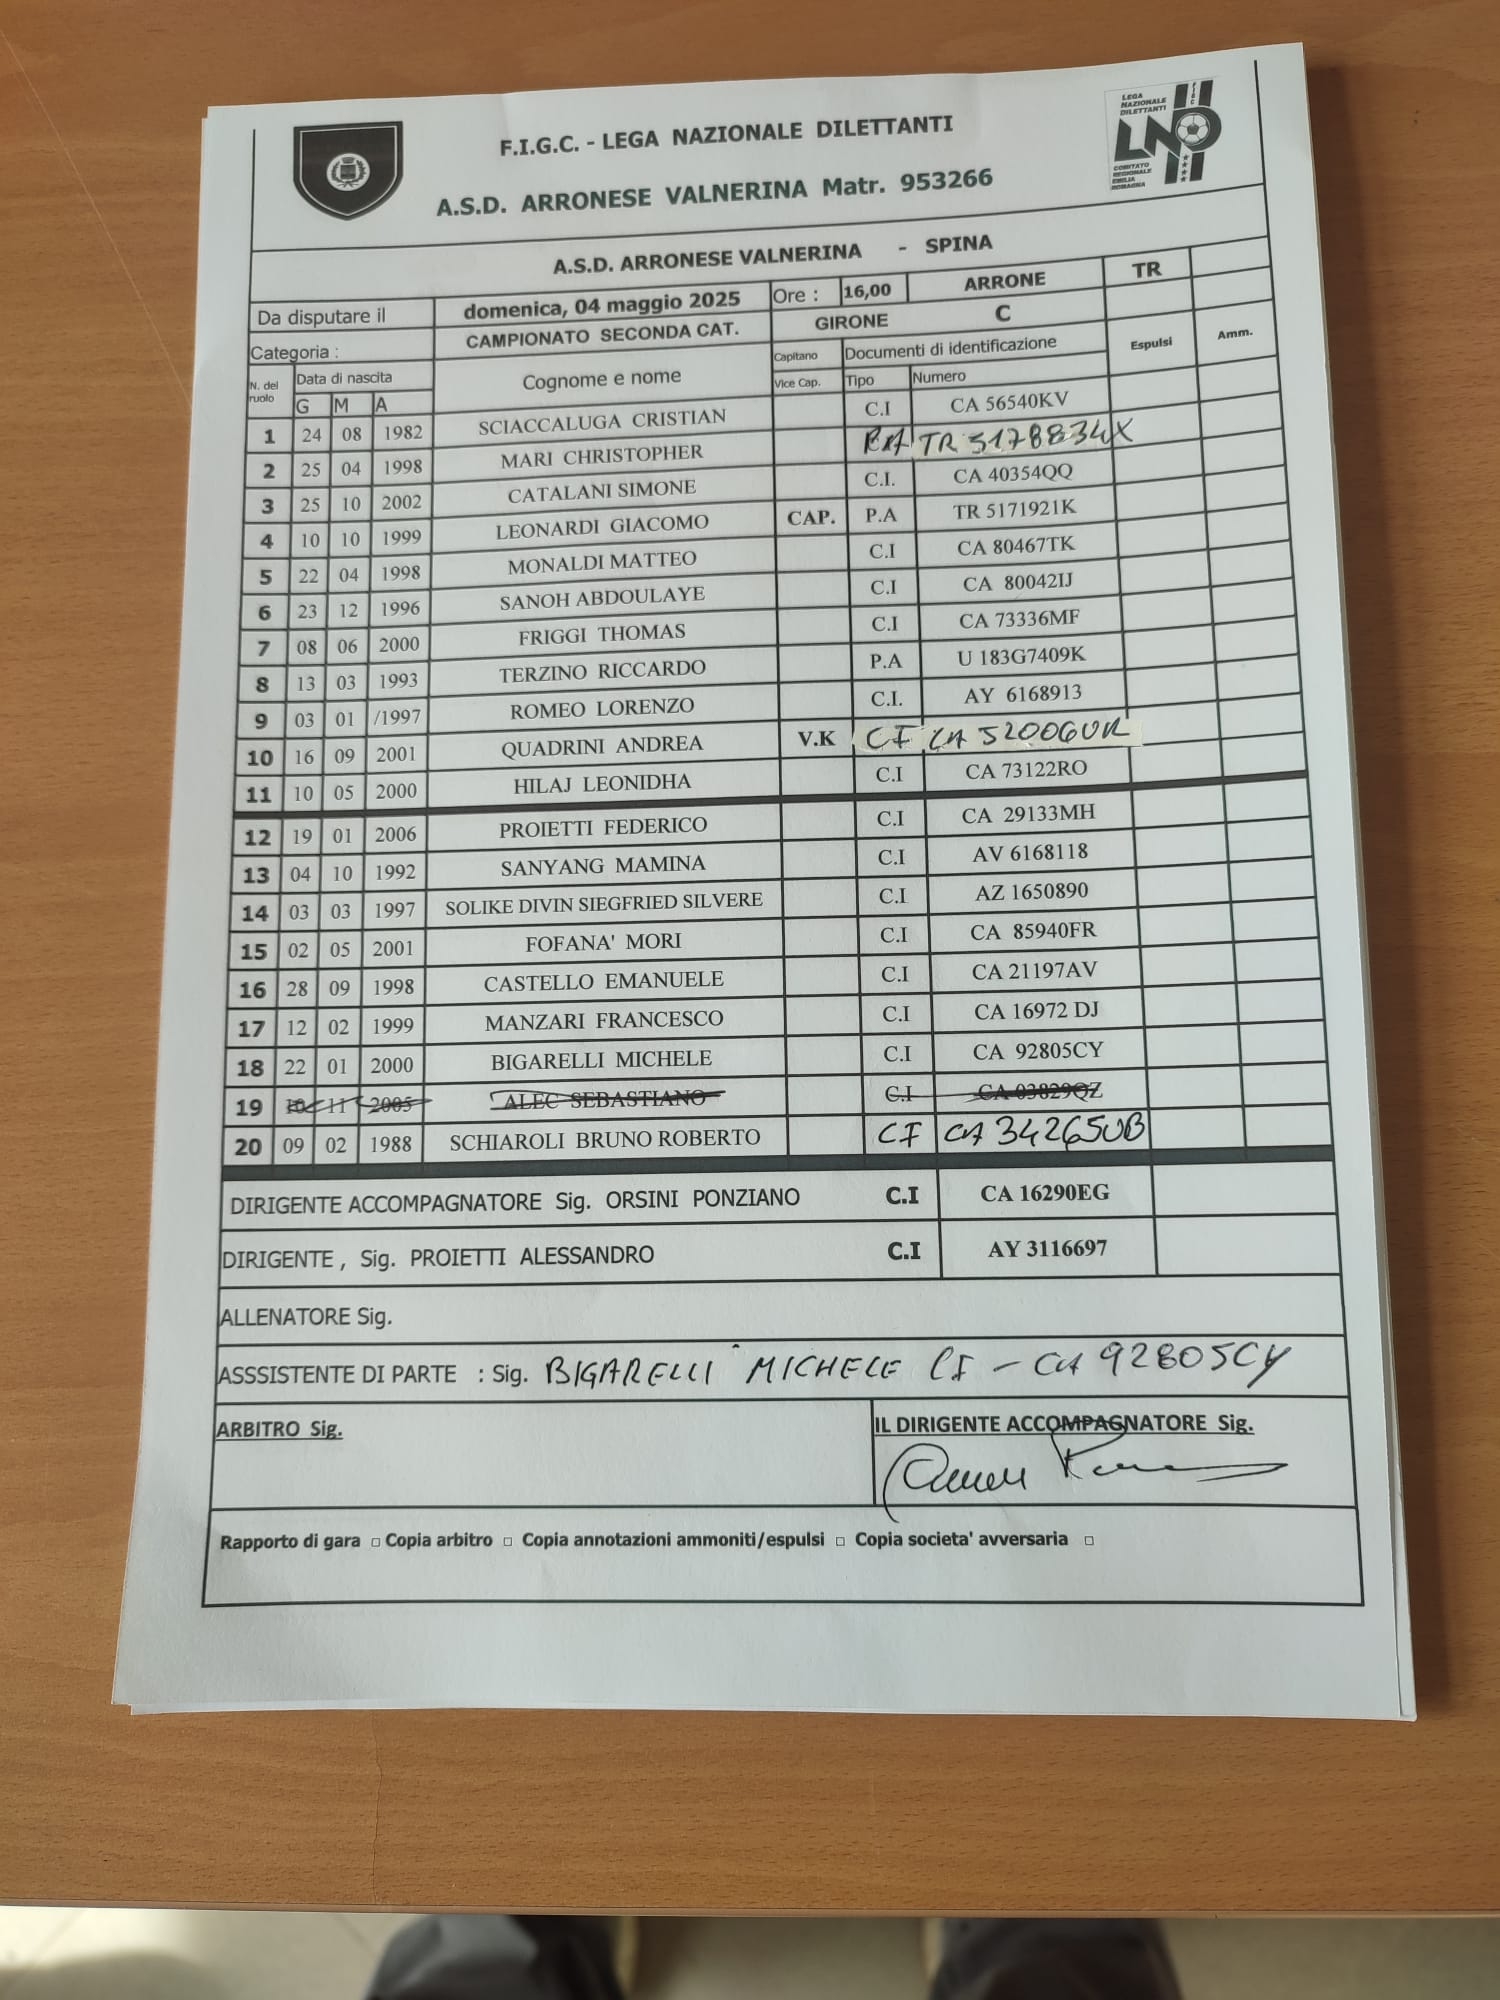 F.I.G.C. - LEGA NAZIONALE DILETTANTI
A.S.D. ARRONESE VALNERINA Matr. 953266
LEGA
NAZIONALE
DILETTANTI
F I G C
LND
COMITATO
REGIONALE
EMILIA
ROMAGNA
A.S.D. ARRONESE VALNERINA - SPINA
Da disputare il domenica, 04 maggio 2025 Ore : 16,00 ARRONE TR
Categoria : CAMPIONATO SECONDA CAT. GIRONE C
N. del ruolo Data di nascita Cognome e nome Capitano Documenti di identificazione Espulsi Amm.
G M A Vice Cap. Tipo Numero
1 24 08 1982 SCIACCALUGA CRISTIAN C.I CA 56540KV
2 25 04 1998 MARI CHRISTOPHER TR 5178834X
3 25 10 2002 CATALANI SIMONE C.I. CA 40354QQ
4 10 10 1999 LEONARDI GIACOMO CAP. P.A TR 5171921K
5 22 04 1998 MONALDI MATTEO C.I CA 80467TK
6 23 12 1996 SANOH ABDOULAYE C.I CA 80042IJ
7 08 06 2000 FRIGGI THOMAS C.I CA 73336MF
8 13 03 1993 TERZINO RICCARDO P.A U 183G7409K
9 03 01 /1997 ROMEO LORENZO C.I. AY 6168913
10 16 09 2001 QUADRINI ANDREA V.K CI CA 52006UR
11 10 05 2000 HILAJ LEONIDHA C.I CA 73122RO
12 19 01 2006 PROIETTI FEDERICO C.I CA 29133MH
13 04 10 1992 SANYANG MAMINA C.I AV 6168118
14 03 03 1997 SOLIKE DIVIN SIEGFRIED SILVERE C.I AZ 1650890
15 02 05 2001 FOFANA' MORI C.I CA 85940FR
16 28 09 1998 CASTELLO EMANUELE C.I CA 21197AV
17 12 02 1999 MANZARI FRANCESCO C.I CA 16972 DJ
18 22 01 2000 BIGARELLI MICHELE C.I CA 92805CY
19 10 11 2005 ALEC SEBASTIANO C.I CA 03829QZ
20 09 02 1988 SCHIAROLI BRUNO ROBERTO CI CA 34265UB
DIRIGENTE ACCOMPAGNATORE Sig. ORSINI PONZIANO C.I CA 16290EG
DIRIGENTE , Sig. PROIETTI ALESSANDRO C.I AY 3116697
ALLENATORE Sig.
ASSSISTENTE DI PARTE : Sig. BIGARELLI MICHELE CI - CA 92805CY
ARBITRO Sig. IL DIRIGENTE ACCOMPAGNATORE Sig.
Rapporto di gara □ Copia arbitro □ Copia annotazioni ammoniti/espulsi □ Copia societa' avversaria □